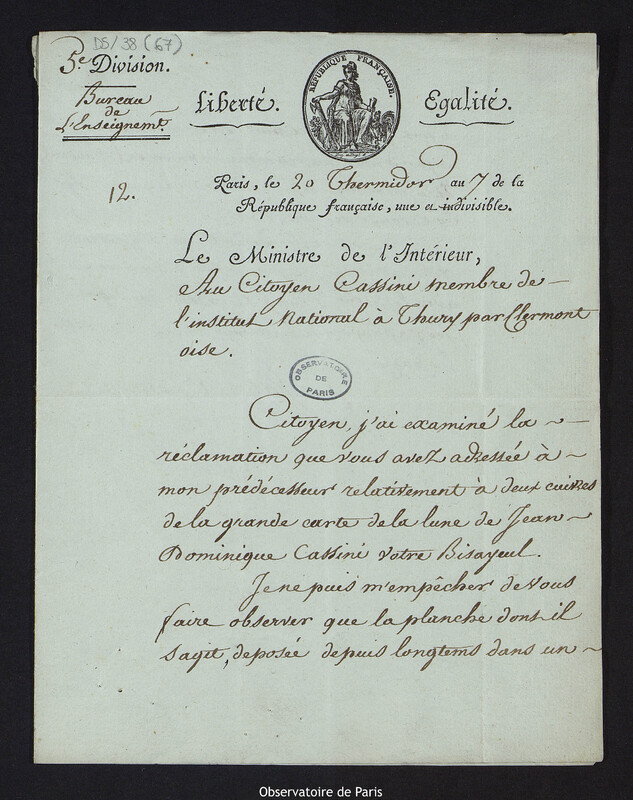 DS/38 (67)
5.e Division.
Bureau
de
L'Enseignemt.
Liberté.
RÉPUBLIQUE FRANÇAISE.
Egalité.
12.
Paris, le 20 Thermidor au 7 de la
République française, une et indivisible.
Le Ministre de l'Intérieur,
Au Citoyen Cassini membre de
l'institut National à Thury par Clermont
oise.
OBSERVATOIRE
DE
PARIS
Citoyen, j'ai examiné la
réclamation que vous avez adressée à
mon prédécesseur relativement à deux cuivres
de la grande carte de la lune de Jean
Dominique Cassini votre Bisayeul.
Je ne puis m'empêcher de vous
faire observer que la planche dont il
sagit, deposée depuis longtems dans un
Observatoire de Paris